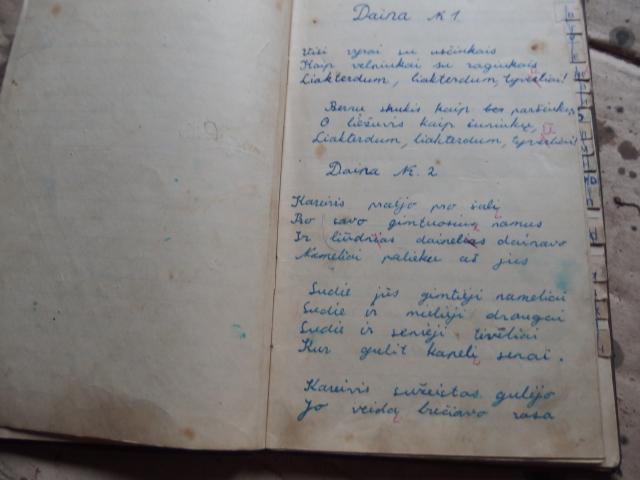 Daina N 1
Visi vyrai su ūsčiukais
Kaip velniukai su ragiukais
Liakterdum, liakterdum,
Bernu skukis kaip bes
O liežuvis kaip šuniukų,
Liakterdum, liakterdum,
Daina Nr. 2
Kareivis praėjo pro šalį
Pro savo gimtuosius namus
Ir liūdnias daineles dainavo
Nameliai palieku aš jus
Sudie jūs gimtieji nameliai
Sudie ir mielieji draugai
Sudie ir senieji tėvėliai
Kur gulit kapelį senai.
Kareivis sužeistas gulėjo
Jo veidą brečiavo rasa